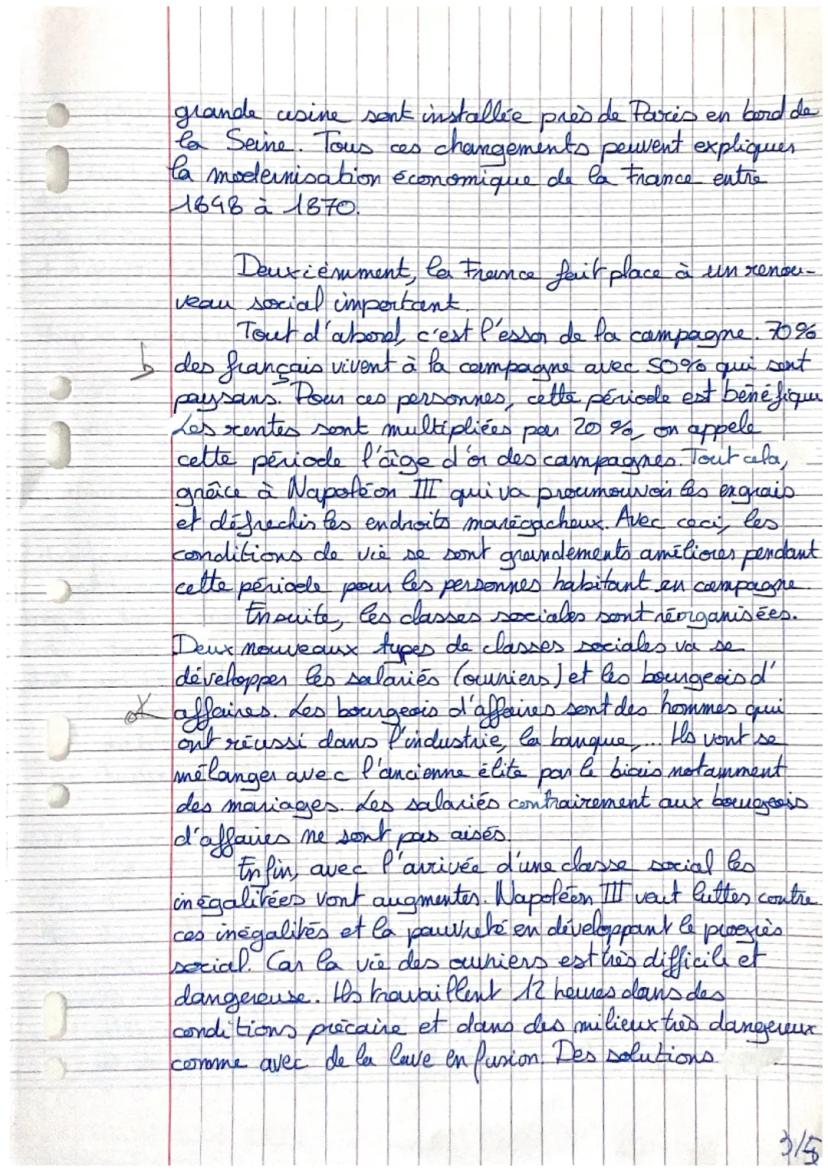 grande usine sont installée près de Paris en bord de
la Seine. Tous ces changements peuvent expliquer
la modernisation économique de la France entre
1848 à 1870.
Deuxièmement, la France fait place à un renou-
veau social important.
Tout d'abord, c'est l'essor de la campagne. 70%
b des français vivent à la campagne avec 50% qui sont
paysans. Pour ces personnes, cette période est bénéfique
Les rentes sont multipliées par 20%, on appele
cette période l'âge d'or des campagnes. Tout cela,
grâce à Napoléon III qui va proumouvoir les engrais
et défrechir les endroits marégacheux. Avec ceci, les
conditions de vie se sont grandements améliores pendant
cette période pour les personnes habitant en campagne.
Ensuite, les classes sociales sont réorganisées.
Deux nouveaux types de classes sociales va se
développer les salariés (ouvriers) et les bourgeois d'
affaires. Les bourgeois d'affaires sont des hommes qui
ont réussi dans l'industrie, la banque,... Ils vont se
mélanger avec l'ancienne élite par le biais notamment
des mariages. Les salariés contrairement aux bourgeois
d'affaires ne sont pas aisés.
Enfin, avec l'arrivée d'une classe social les
inégalitées vont augmenter. Napoléon III veut lutter contre
ces inégalités et la pauvreté en développant le progrès
social. Car la vie des ouvriers est très difficile et
dangereuse. Ils travaillent 12 heures dans des
conditions précaire et dans des milieux très dangereux
comme avec de la lave en fusion. Des solutions
3/5